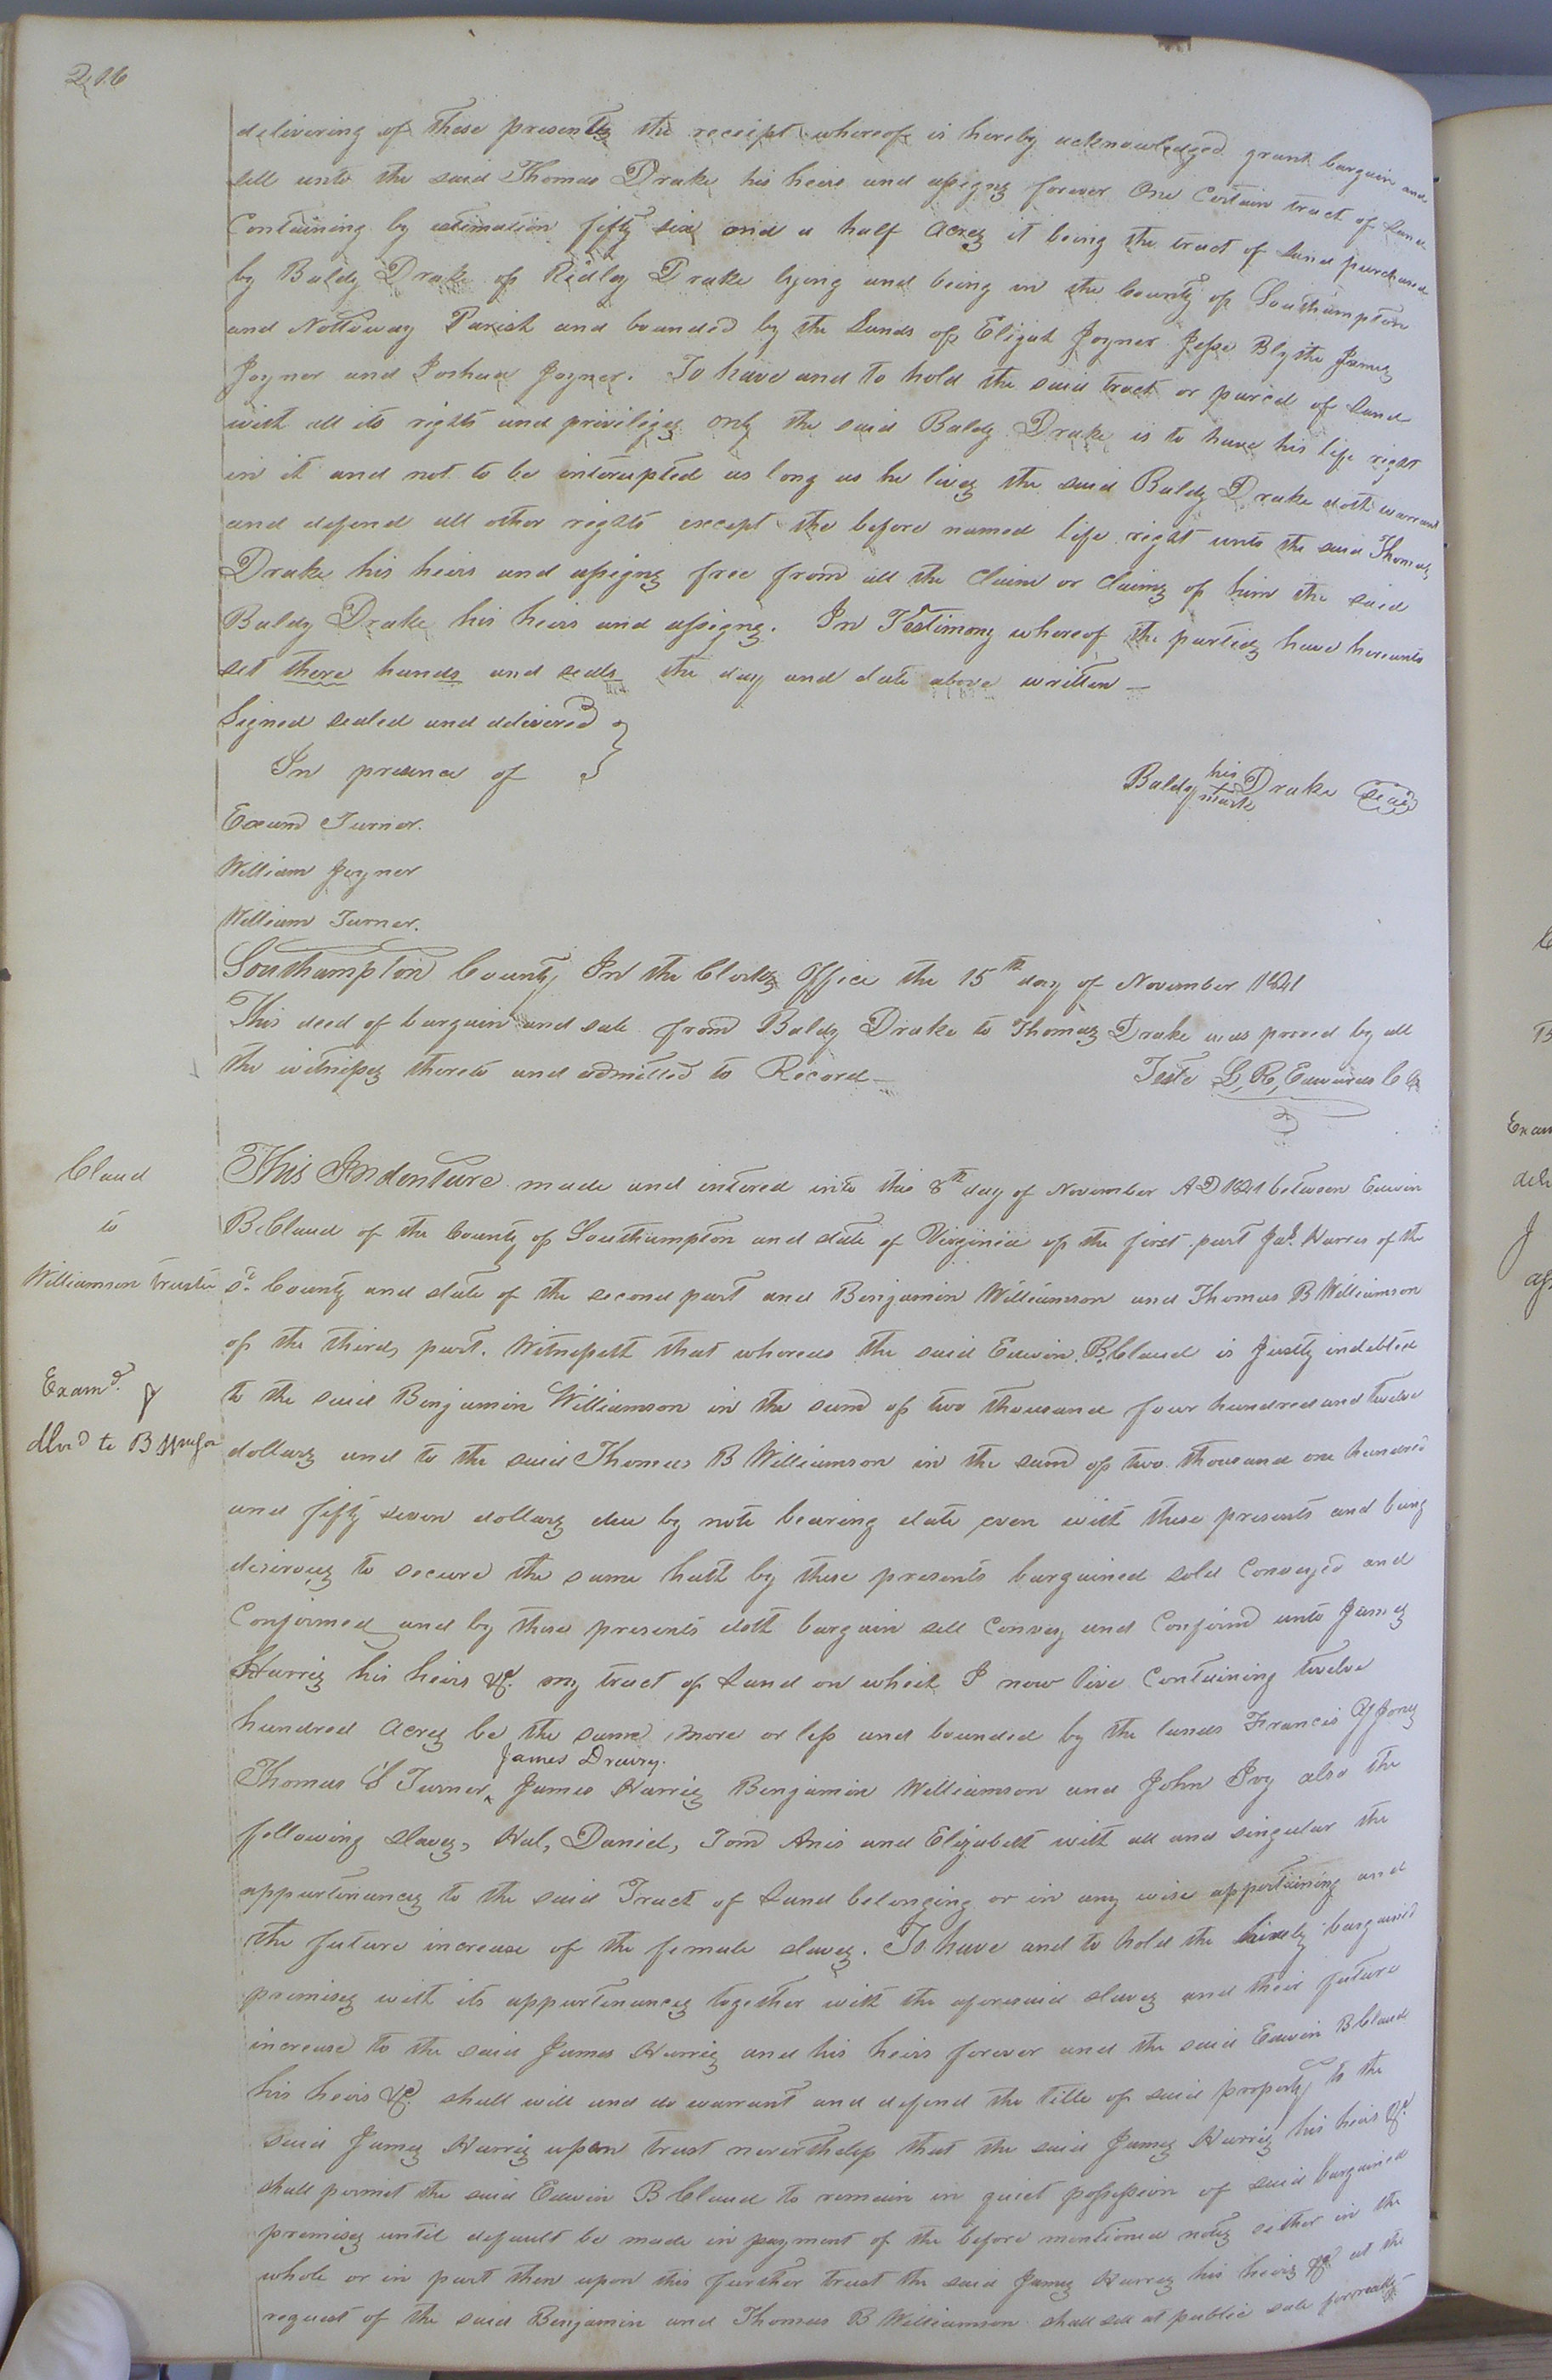 delivering of these presents the receipt whereof is hereby acknowledged grant bargain and
sell unto the said Thomas Drake his heirs and assigns forever One Certain tract of Land
Containing by estimation fifty six and a half Acres it being the tract of Land purchased
by Baldy Drake of Ridley Drake lying and being in the County of Southampton
and Nottoway Parish and bounded by the Lands of Elijah Joyner Jesse Blythe James
Joyner and Joshua Joyner. To have and to hold the said tract or parcel of Land
with all its rights and priviliges only the said Baldy Drake is to have his life right
in it and not to be interupted as long as he lives the said Baldy Drake doth warrant
and defend all other rights except the before named life right unto the said Thomas
Drake his heirs and assigns free from all the Claim or Claims of him the said
Baldy Drake his heirs and assigns. In Testimony whereof the parties have hereunto
set there hands and seals the day and date above written —
Signed sealed and delivered
In presence of
Baldy his mark Drake Seal
Exum Turner.
William Joyner
William Turner.
Southampton County In the Clerks Office the 15th day of November 1841
This deed of bargain and sale from Baldy Drake to Thomas Drake was proved by all
the witnesses thereto and admitted to Record —
Teste L, R, Edwards C C
Claud
to
Williamson trustee
Examd. &
dlvd to B Wmson
This Indenture made and intered into this 8th day of November A D 1841 between Edwin
B. Claud of the County of Southampton and state of Virginia of the first part Jas. Harris of the
sd. County and state of the second part and Benjamin Williamson and Thomas B Williamson
of the third, part. Witnesseth that whereas the said Edwin B. Claud is Justly indebted
to the said Benjamin Williamson in the sum of two thousand four hundred and twelve
dollars and to the said Thomas B Williamson in the sum of two thousand one hundred
and fifty seven dollars due by note bearing date even with these presents and being
desirous to secure the same hath by these presents bargained sold Conveyed and
Confirmed and by these presents doth bargain sell Convey and Confirm unto James
Harris his heirs &c. my tract of Land on which I now live Containing twelve
hundred Acres be the same more or less and bounded by the lands Francis Jones
James Drewry.
Thomas S Turner, James Harris Benjamin Williamson and John Ivy also the
following slaves, Hal, Daniel, Tom Anis and Elizabeth with all and singular the
appurtinances to the said Tract of Land belonging or in any wise appertaining and
the future increase of the female slaves. To have and to hold the bargained
premises with its appurtinances together with the aforesaid slaves and their future
increase to the said James Harris and his heirs forever and the said Edwin B Claud
his heirs &c. shall will and do warrant and defend the title of said property to the
said James Harris upon trust nevertheless that the said James Harris his heirs &c.
shall permit the said Edwin B Claud to remain in quiet possession of said bargained
premises until default be made in payment of the before mentioned notes either in the
whole or in part then upon this further trust the said James Harris his heirs &c at the
request of the said Benjamin and Thomas B Williamson shall sell at public sale for ready